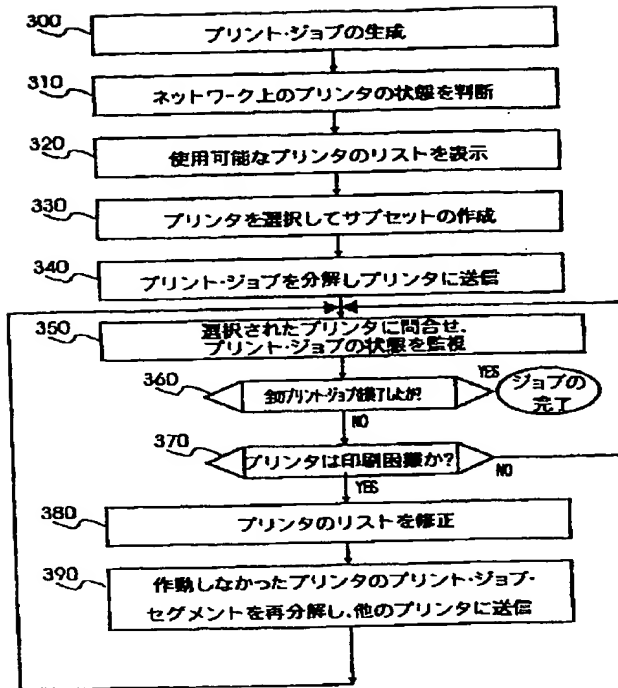 300
プリント・ジョブの生成
310
ネットワーク上のプリンタの状態を判断
320
使用可能なプリンタのリストを表示
330
プリンタを選択してサブセットの作成
340
プリント・ジョブを分解しプリンタに送信
350
選択されたプリンタに問合せ、
プリント・ジョブの状態を監視
360
全のプリント・ジョブを終了したか?
YES
ジョブの
完了
NO
370
プリンタは印刷困難か?
NO
YES
380
プリンタのリストを修正
390
作動しなかったプリンタのプリント・ジョブ・
セグメントを再分解し、他のプリンタに送信